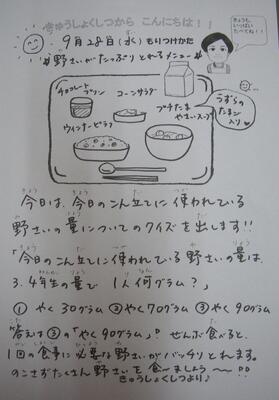 きゅうしょくしつから こんにちは！！
きょうも、
いっぱい
たべてね！！
9月28日(水)もりつけかた
野さいがたっぷりとれるメニュー
チョコレート
プリン
コーンサラダ
ブチたま
やさいスープ
うずらの
たまご
入り♡
ウインナーピラフ
今日は、今日のこん立てに使われている
野さいの量についてのクイズを出します!!
「今日のこん立てに使われている野さいの量は、
3.4年生の量で 1人何グラム？」
① やく30グラム ②やく70グラム ③やく90グラム
答えは③の「やく90グラム」。ぜんぶ食べると、
1回の食事に必要な野さいがバッチリとれます。
のこさずたくさん野さいを食べましょう〜〜!!
きゅうしょくしつより♪